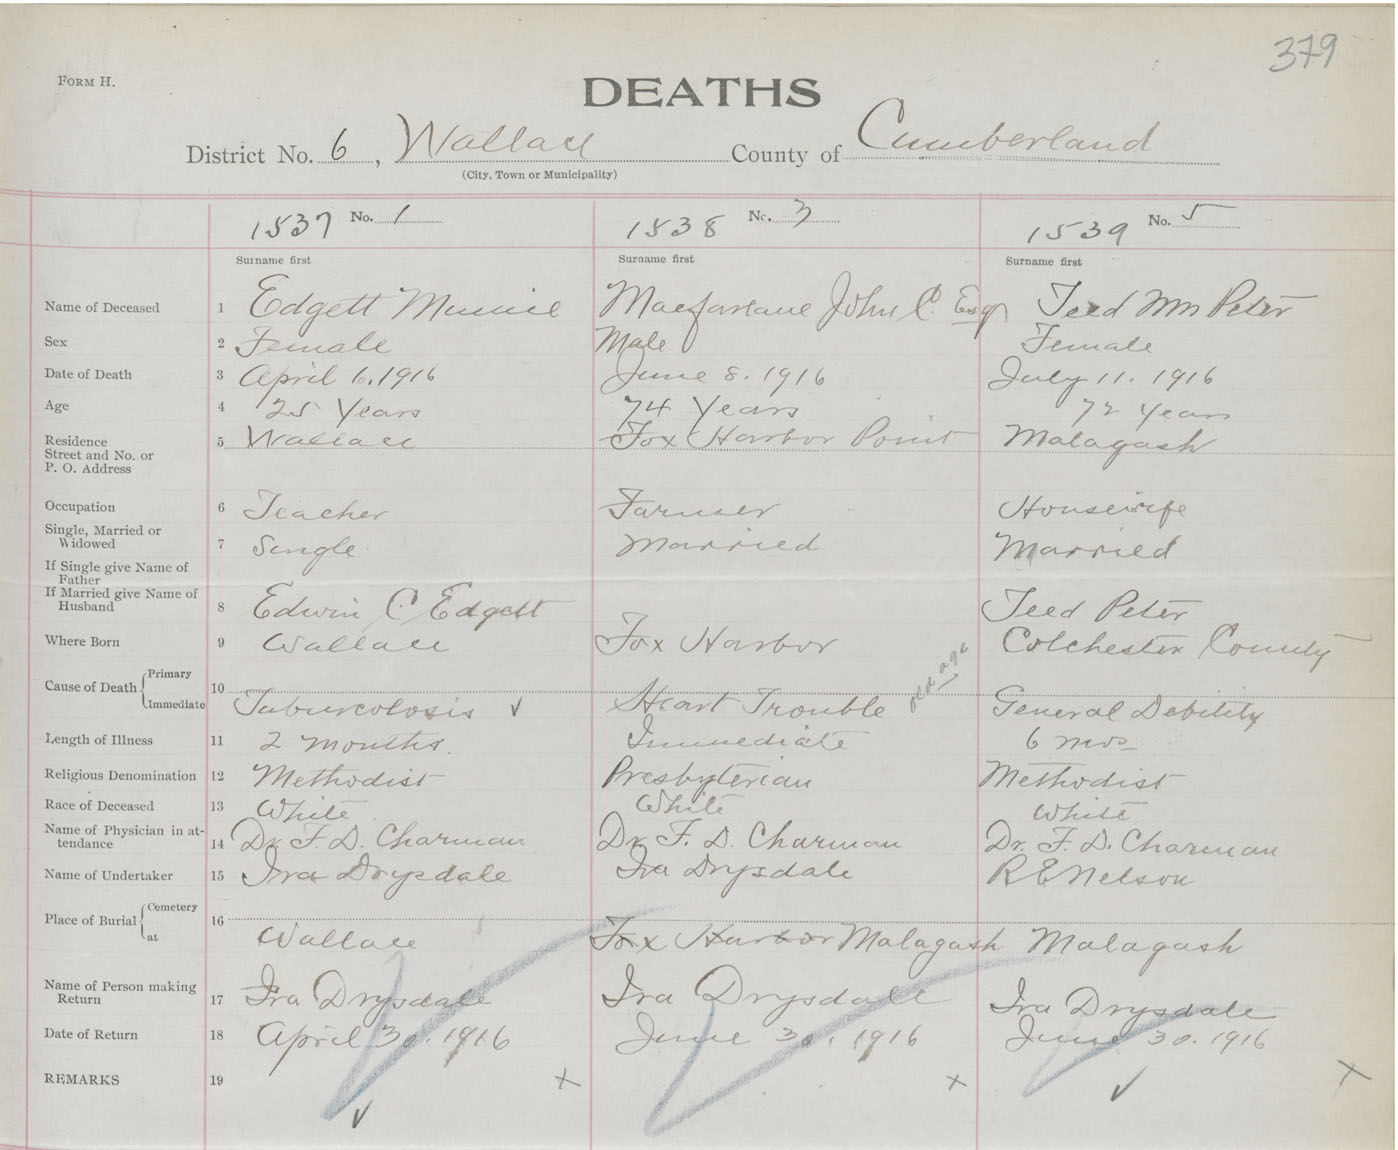 379
FORM H.
DEATHS
District No. 6, Wallace County of Cumberland
(City, Town or Municipality)
1537 No. 1 1538 No. 3 1539 No. 5
Surname first Surname first Surname first
Name of Deceased 1 Edgett Macfarlane John C. Esq Teed Mrs Peter
Sex 2 Female Male Female
Date of Death 3 April 6. 1916 June 8. 1916 July 11. 1916
Age 4 25 Years 74 Years 72 Years
Residence
Street and No. or
P. O. Address 5 Wallace Fox Harbor Point Malagash
Occupation 6 Teacher Farmer Housewife
Single, Married or
Widowed 7 Single Married Married
If Single give Name of
Father
If Married give Name of
Husband 8 Edwin C. Edgett Teed Peter
Where Born 9 Wallace Fox Harbor Colchester County
Cause of Death Primary
Immediate 10 Tuburcolosis ✓ Heart Trouble old age General Debility
Length of Illness 11 2 months. Immediate 6 mos
Religious Denomination 12 Methodist Presbyterian Methodist
Race of Deceased 13 White White White
Name of Physician in at-
tendance 14 Dr. F. D. Charman Dr. F. D. Charman Dr. F. D. Charman
Name of Undertaker 15 Ira Drysdale Ira Drysdale R E Nelson
Place of Burial Cemetery
at 16 Wallace Fox Harbor Malagash Malagash
Name of Person making
Return 17 Ira Drysdale Ira Drysdale Ira Drysdale
Date of Return 18 April 30. 1916 June 30. 1916 June 30. 1916
REMARKS 19 x x x
✓ ✓